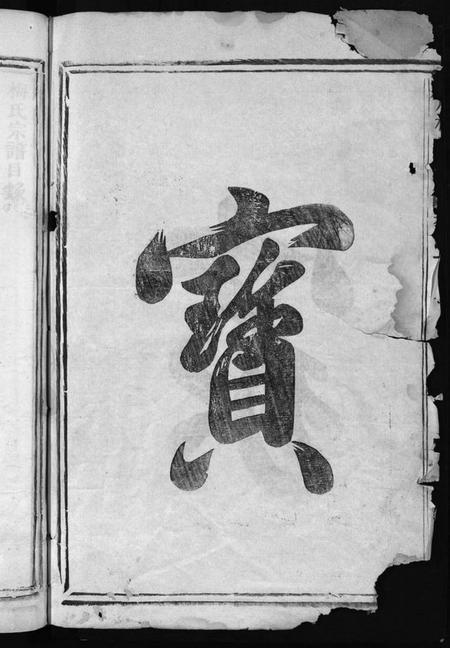 寶
梅氏宗譜目錄